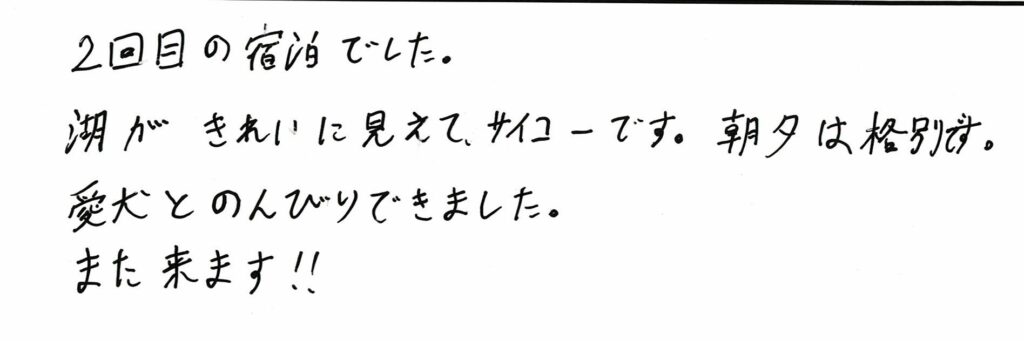 2回目の宿泊でした。
湖がきれいに見えて、サイコーです。朝夕は格別です。
愛犬とのんびりできました。
また来ます!!